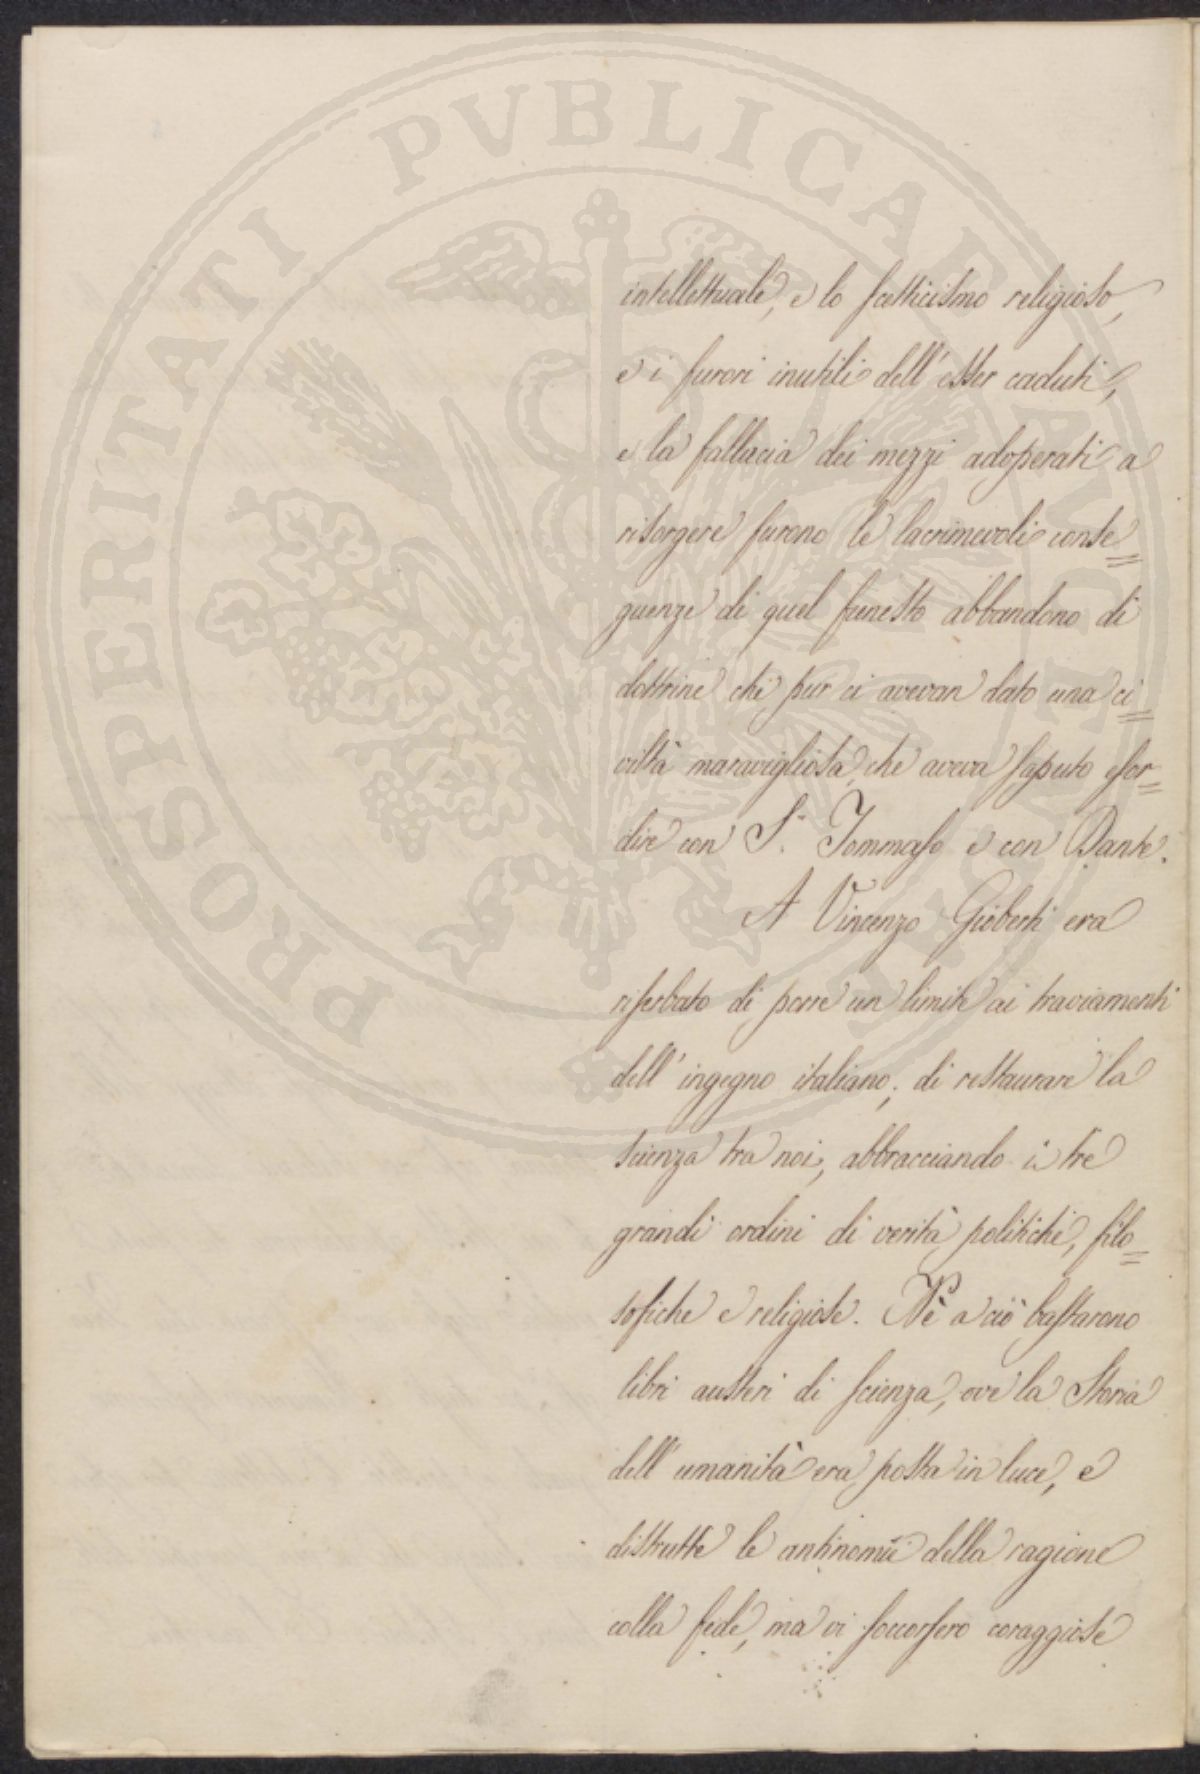 PROSPERITATI PUBLICAE AUGENDAE
intellettuale, e lo scetticismo religioso,
e i furori inutili dell'esser caduti,
e la fallacia dei mezzi adoperati a
risorgere furono le lacrimevoli conse=
guenze di quel funesto abbandono di
dottrine che pur ci avevan dato una ci=
viltà maravigliosa, che aveva saputo esor=
dire con S. Tommaso e con Dante.
A Vincenzo Gioberti era
riserbato di porre un limite ai traviamenti
dell'ingegno italiano; di restaurare la
scienza tra noi, abbracciando i tre
grandi ordini di verità politiche, filo=
sofiche e religiose. Nè a ciò bastarono
libri austeri di scienza, ove la Storia
dell'umanità era posta in luce, e
distrutte le antinomie della ragione
colla fede, ma vi soccorsero coraggiose